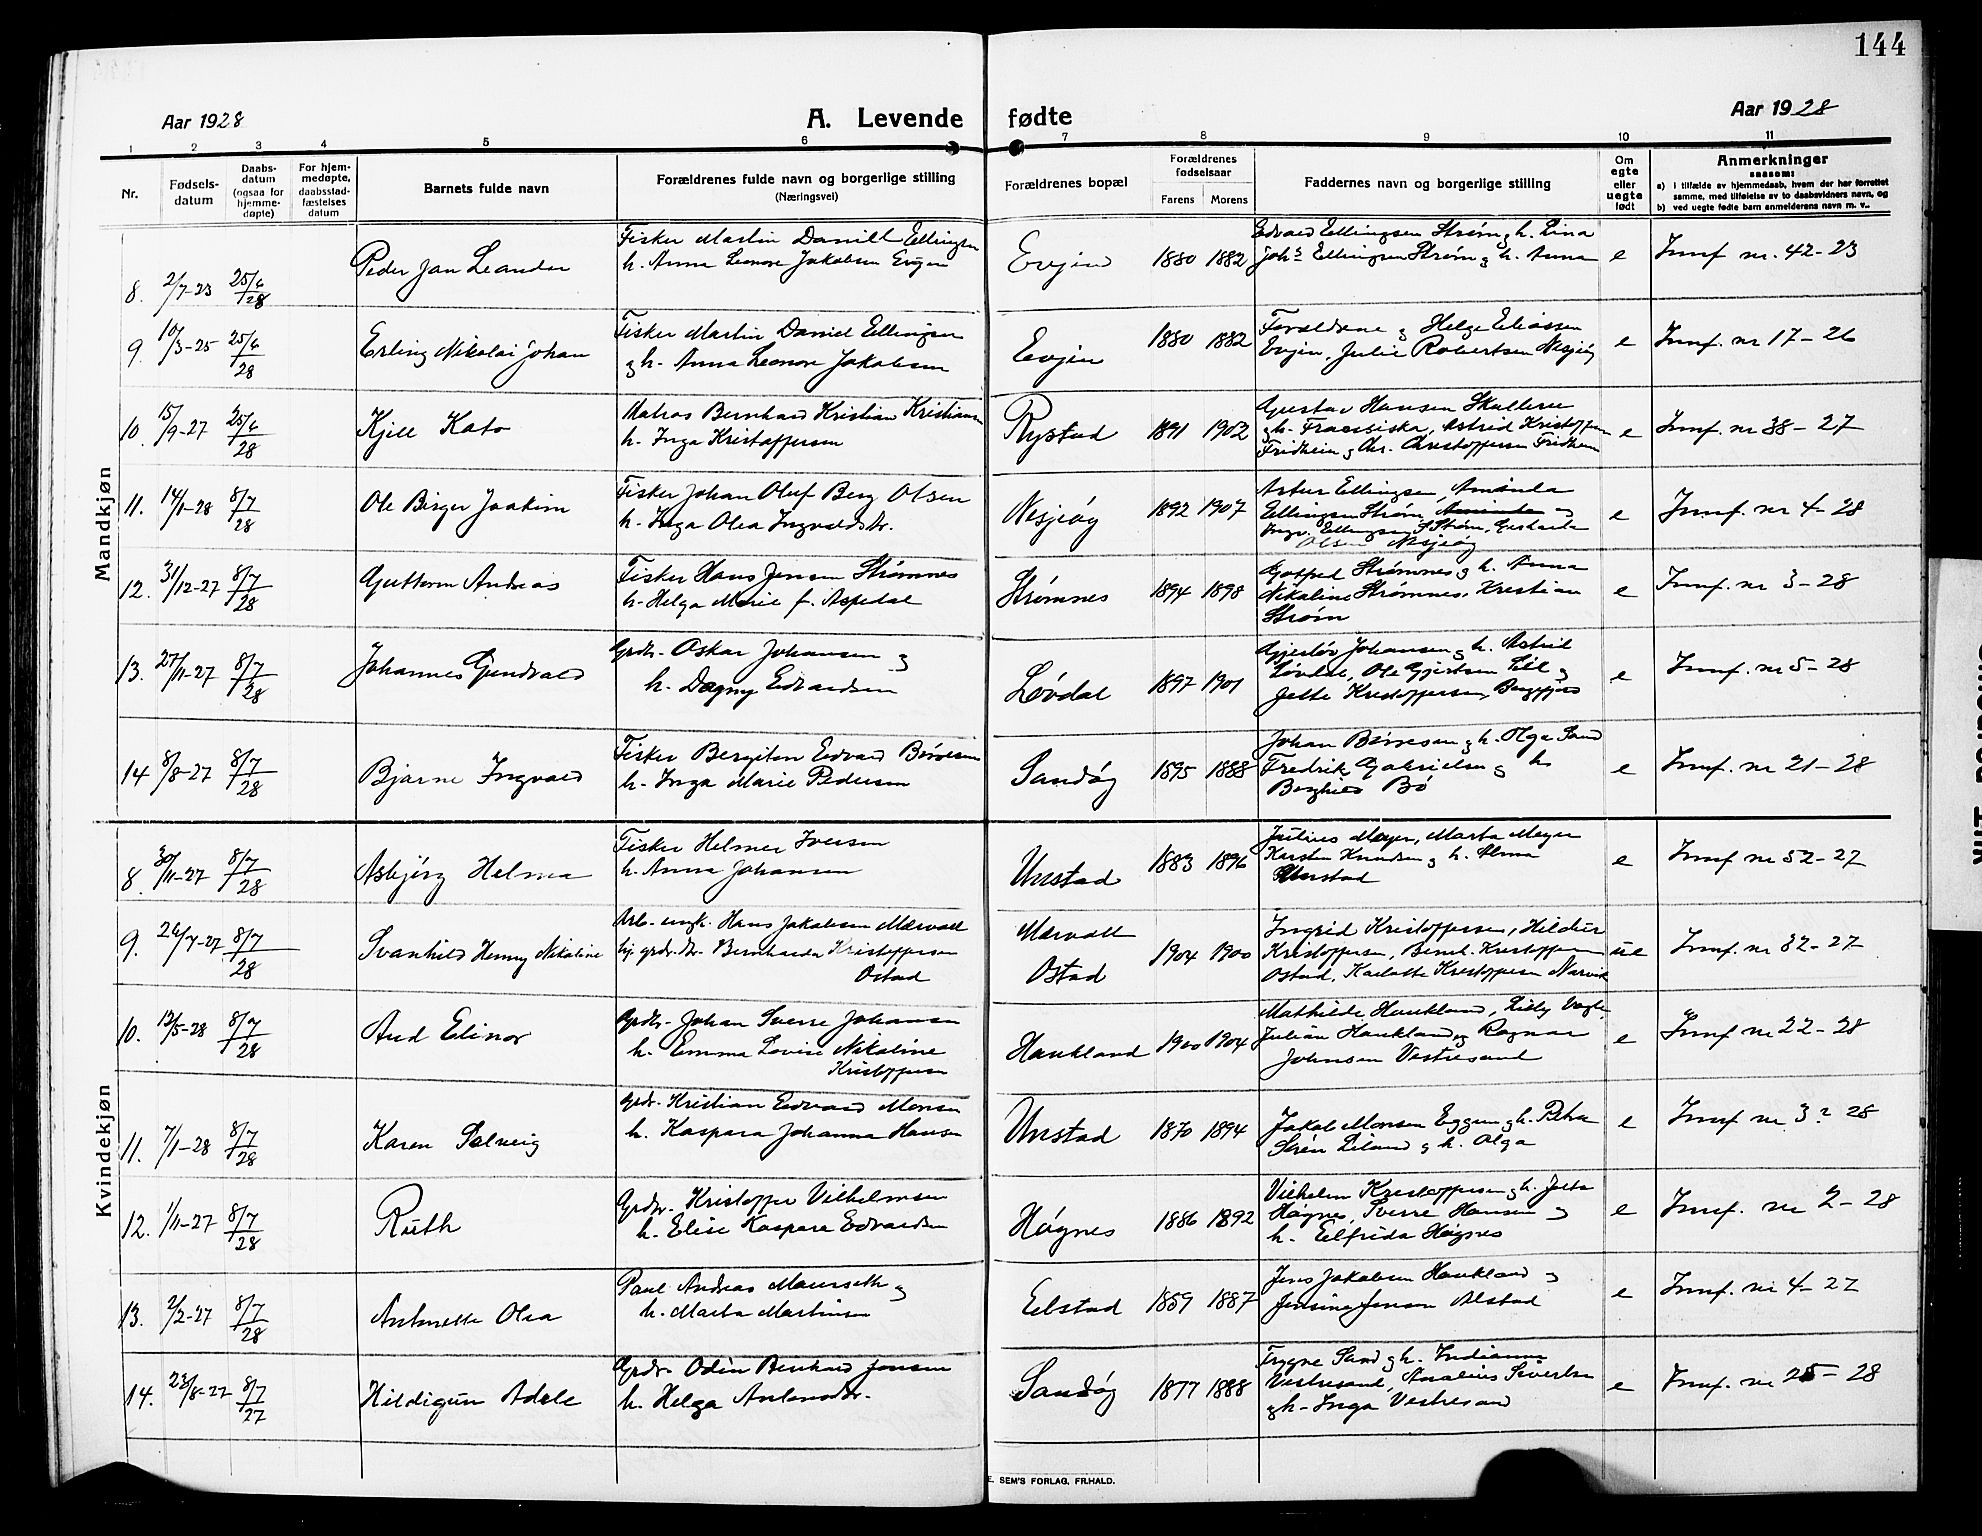 144
Aar 1928
A. Levende fødte
Aar 1928
1 2 3 4 5 6 7 8 9 10 11
Nr.
Fødsels-
datum
Daabs-
datum
(ogsaa for
hjemme-
døpte)
For hjem-
medøpte,
daabsstad-
fæstelses
datum
Barnets fulde navn
Forældrenes fulde navn og borgerlige stilling
(Næringsvei)
Forældrenes bopæl
Forældrenes
fødselsaar
Farens Morens
Faddernes navn og borgerlige stilling
Om
egte
eller
uegte
født
Anmerkninger
saasom:
a) i tilfælde av hjemmedaab, hvem der har forrettet
samme, med tilføielse av to daabsvidners navn, og
b) ved uegte fødte barn anmelderens navn m. v..
Mandkjøn
8. 2/7-23 25/6/28 Peder Jan Leander
Fisker Martin Daniel Ellingsen
h. Anna Leonore Jakobsen Evjen
Evjen 1880 1882
Edvard Ellingsen Strøm og h. Lina
Johs Ellingsen Strøm og h. Anna
e Innf nr. 42-23
9. 10/3-25 25/6/28 Erling Nikolai Johan
Fisker Martin Daniel Ellingsen
og h. Anna Leonore Jakobsen
Evjen 1880 1882
Forældrene og Helge Eliassen
Evjen, Julie Robertsen Nesjeøy
e Innf. nr 17-26
10. 15/9-27 25/6/28 Kjell Kato
Matros Bernhard Kristian Kristiansen
h. Inga Kristoffersen
Rystad 1891 1902
Gustav Hansen
og h. Astrid Kristoffersen
Fridheim og Chr. Christoffersen Fridheim
e Innf. nr 38-27
11. 14/1-28 8/7/28 Ole Birger Joakim
Fisker Johan Oluf Berg Olsen
h. Inga Olea Ingvaldsdr.
Nesjeøy 1892 1907
Artur Ellingsen, Amanda
Ellingsen Strøm, Amanda og
Ingv. Ellingsen Strøm,
Olsen Nesjeøy
e Innf. nr 4-28
12. 31/12-27 8/7/28 Guttorm Andreas
Fisker Hans Jensen Strømnes
h. Helga Marie f. Aspedal
Strømnes 1894 1898
Strømnes og h. Anna
Nikoline Strømnes, Kristian
Strøm
e Innf. nr 3-28
13. 27/11-27 8/7/28 Johannes Gundvald
Grdbr. Oskar Johansen og
h. Dagny Edvardsen
Løvdal 1897 1901
Johansen og h. Astrid
Løvdal, Ole Gjertsen og
Jette Kristoffersen,
e Innf. nr 5-28
14 8/8-27 8/7/28 Bjarne Ingvald
Fisker Bergiton Edvard Børresen
h. Inga Marie Pedersen
Sandøy 1895 1888
Johan Børresen og h. Olga Sand
Fredrik Gabrielsen og h.
Borghild Bø
e Innf. nr 21-28
Kvindekjøn
8. 30/11-27 8/7/28 Asbjørg Helma
Fisker Helmer Iversen
h. Anna Johansen
Unstad 1883 1896
Julius Meyer, Marta Meyer
Karsten Knudsen og h. Alma
Unstad
e Innf nr 52-27
9. 26/7-27 8/7/28 Svanhild Henny Nikoline
Arb. ungk. Hans Jakobsen Mærvoll
pj. grdr. dtr. Bernharda Kristoffersen
Ostad
Mærvoll
Ostad
1904 1900
Ingrid Kristoffersen, Hildur
Kristoffersen, Bernh. Kristoffersen
Ostad, Karlotte Kristoffersen Narvik
ue Innf. nr 32-27
10. 12/5-28 8/7/28 Aud Elinor
Grdbr. Johan Sverre Johansen
h. Emma Lovise Nikoline
Kristoffersen
Haukland 1900 1904
Mathilde Haukland, Lilly
Julian Haukland og Ragnar
Johnsen Vestresand
e Innf nr 22-28
11. 7/1-28 8/7/28 Karen Solveig
Grdr. Kristian Edvard Monsen
h. Kaspara Johanna Hansen
Unstad 1870 1894
Jakob Monsen Eggum og h. Petra
Søren Liland og h. Olga
e Innf nr 3? 28
12. 1/11-27 8/7/28 Ruth
Grdbr. Kristoffer Vilhelmsen
h. Elise Kaspara Edvardsen
Høgnes 1886 1892
Vilhelm Kristoffersen og h. Jette
Høgnes, Sverre Hansen og
h. Elfrida Høgnes
e Innf. nr 2-28
13. 2/2-27 8/7/28 Antonette Olea
Paul Andreas Maurseth og
h. Marta Martinsen
Eelstad 1859 1887
Jens Jakobsen Haukland og
Jensine Jensen Alstad
e Innf. nr 4-27
14. 23/8-27 8/7/27 Hildigun Adele
Grdr. Odin Benhard Jensen
h. Helga Antonsdtr.
Sandøy 1877 1888
Trygve Sand og h. Indianna
Vestresand, Analius Sivertsen
og h. Inga Vestresand
e Innf. nr 25-28
E. SEM'S FORLAG, FR.HALD.